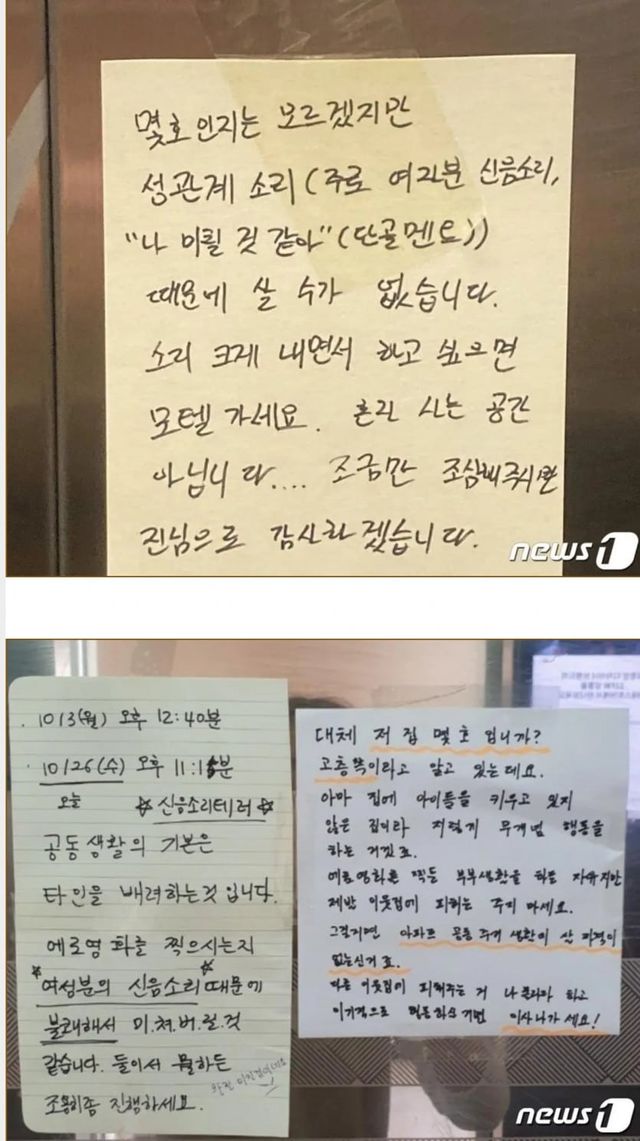 몇호인지는 모르겠지만
성관계 소리 (주로 여자분 신음소리,
"나 미칠 것 같아" (단골멘트))
때문에 살 수가 없습니다.
소리 크게 내면서 하고 싶으면
모텔 가세요. 혼자 사는 공간
아닙니다.... 조금만 조심해주시면
진심으로 감사하겠습니다.
news1
10/3(월) 오후 12:40분
10/26(수) 오후 11:15분
오늘 ☆신음소리테러☆
공동생활의 기본은
타인을 배려하는것입니다.
에로영화를 찍으시는지
*여성분의 신음소리*때문에
불쾌해서 미.쳐.버.릴.것
같습니다. 둘이서 뭘하든
조용히좀 진행하세요.
대체 저 집 몇 호 입니까?
고층쪽이라고 알고 있는데요.
아마 집에 아이들을 키우고 있지
않은 집이라 저렇게 무개념 행동을
하는 거겠죠.
에로영화를 찍든 부부생활을 하든 자유지만
제발 이웃집에 피해는 주지 마세요.
그럴거면 아파트 공동 주거 생활에 산 자격이
없는신거죠.
다른 이웃집이 피해주는 거 나 몰라라 하고
이기적으로 행동하실거면 이사나가세요!
news1